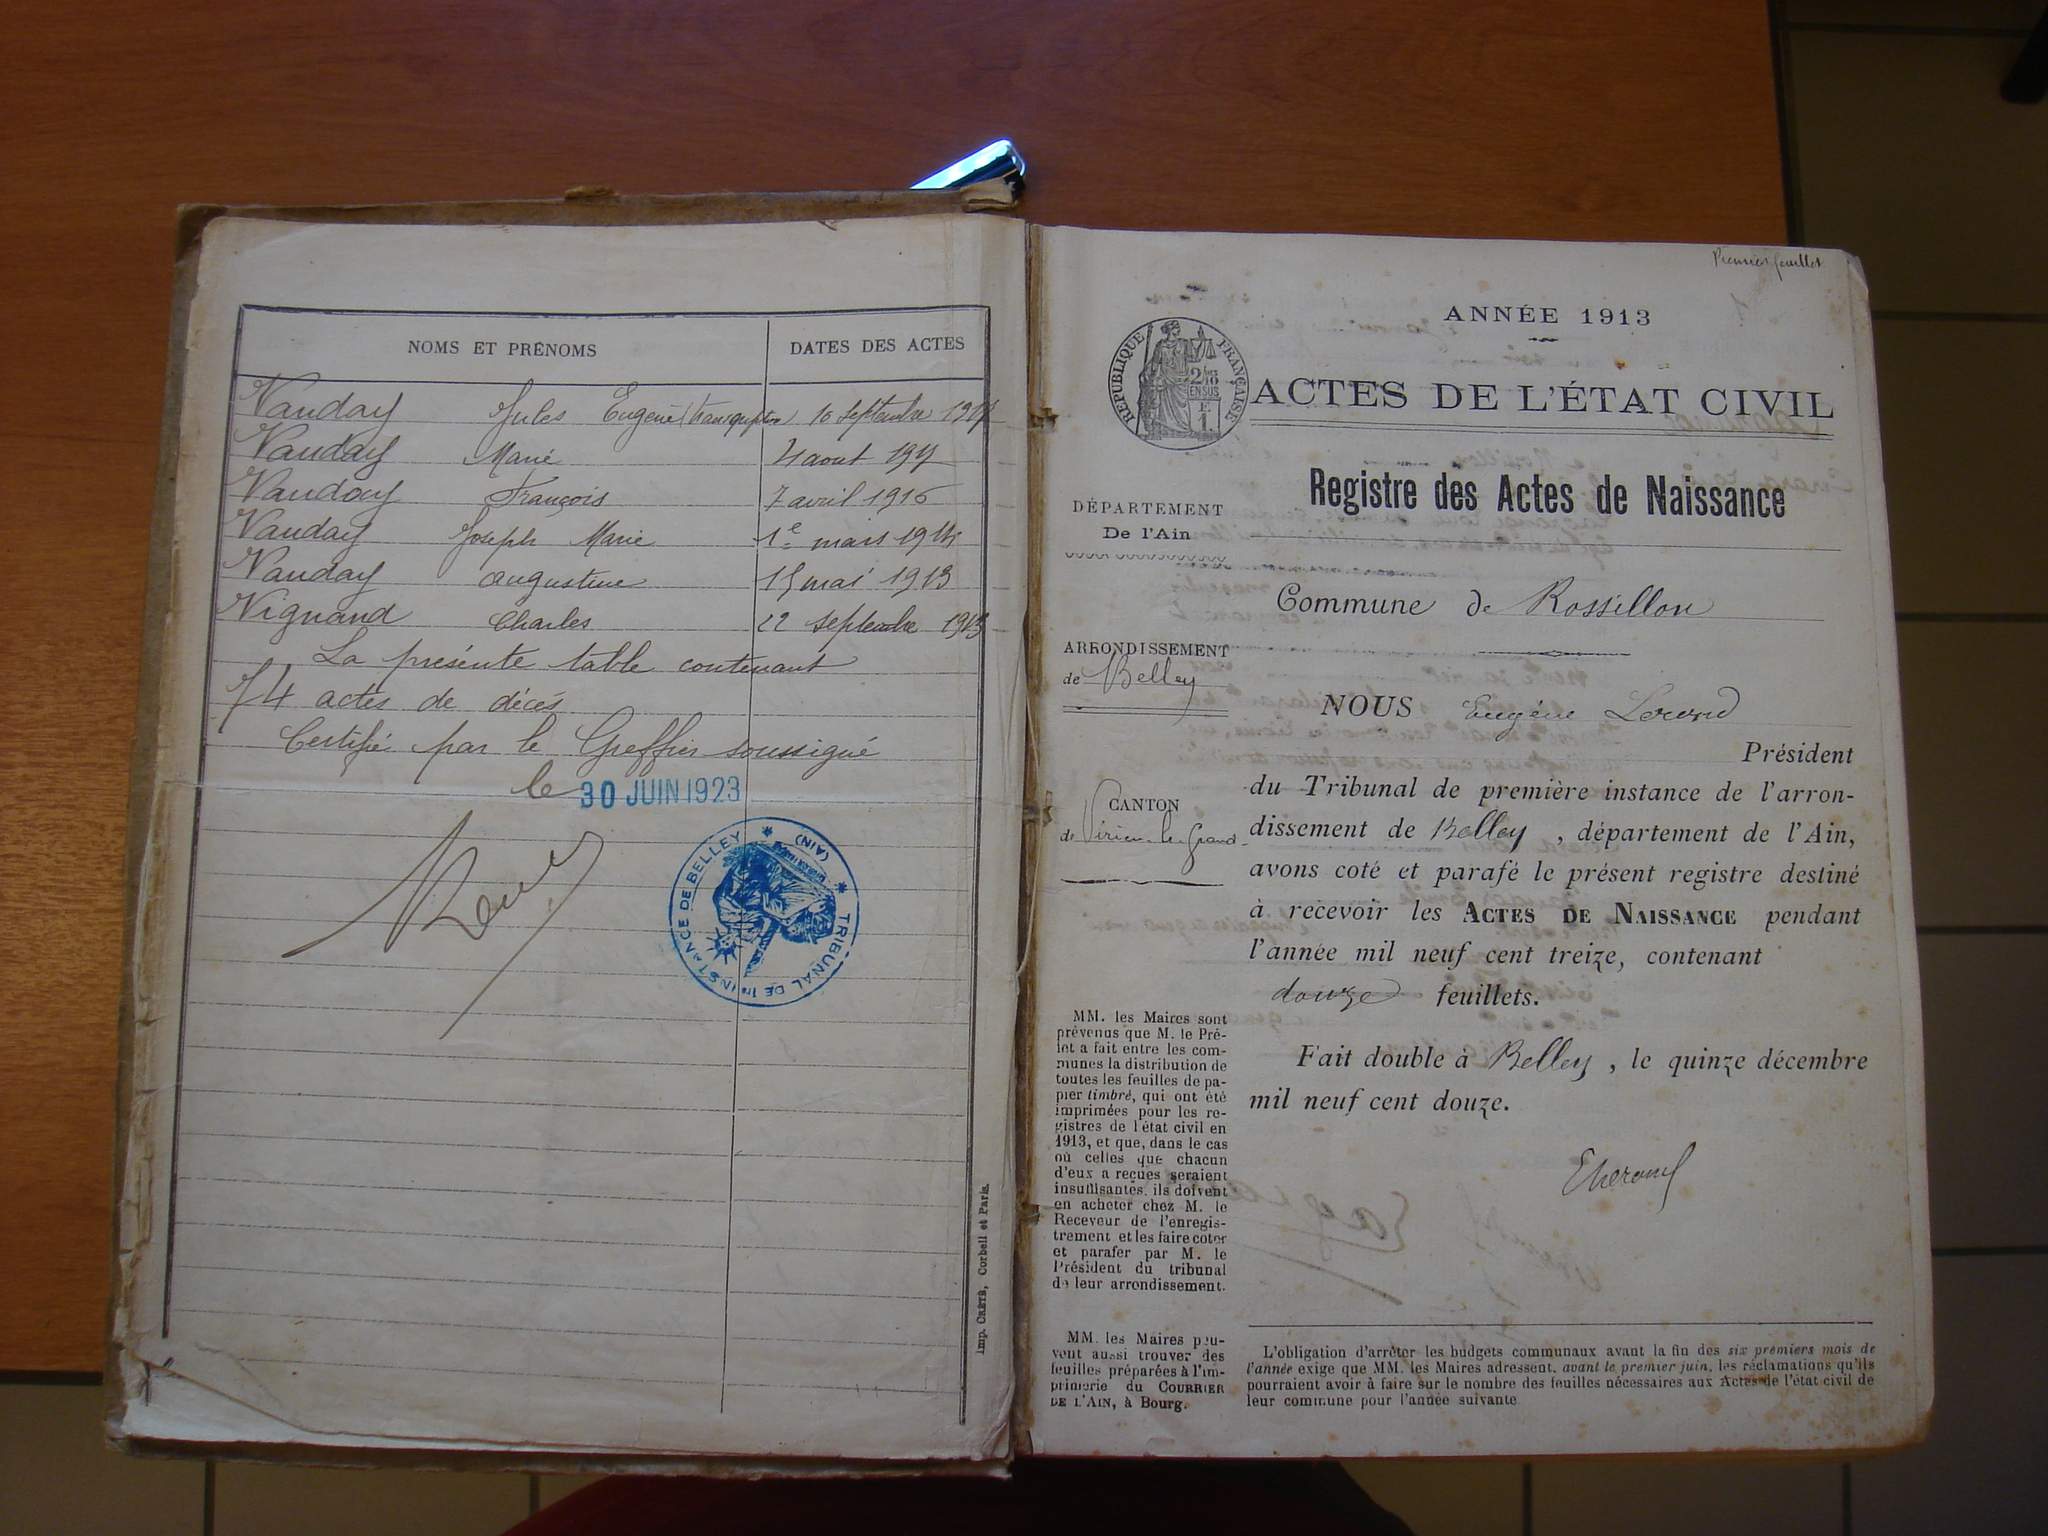 NOMS ET PRÉNOMS
DATES DES ACTES
Vauday Jules Eugène (transcription) 10 septembre
Vauday Marie 4 aout
Vauday François 7 avril 1916
Vauday Joseph Marie 1e mars
Vauday Augustine 15 mai 1913
Vignand Charles 22 septembre 1913
La présente table contenant
74 actes de décés
Certifié par le Greffier soussigné
le 30 JUIN 1923
TRIBUNAL DE 1re INSTANCE DE BELLEY (AIN)
Imp. CRÉTÉ, Corbeil et Paris.
Premier feuillet
ANNÉE 1913
RÉPUBLIQUE FRANÇAISE
2/10
EN SUS
F.
1.
ACTES DE L'ÉTAT CIVIL
Registre des Actes de Naissance
DÉPARTEMENT
De l'Ain
Commune de Rossillon
ARRONDISSEMENT
de Belley
CANTON
de Virieu-le-Grand
NOUS Eugène
Président
du Tribunal de première instance de l'arron-
dissement de Belley, département de l'Ain,
avons coté et parafé le présent registre destiné
à recevoir les ACTES DE NAISSANCE pendant
l'année mil neuf cent treize, contenant
douze feuillets.
Fait double à Belley, le quinze décembre
mil neuf cent douze.
MM. les Maires sont
prévenus que M. le Pré-
fet a fait entre les com-
munes la distribution de
toutes les feuilles de pa-
pier timbré, qui ont été
imprimées pour les re-
gistres de l'état civil en
1913, et que, dans le cas
où celles que chacun
d'eux a reçues seraient
insuffisantes, ils doivent
en acheter chez M. le
Receveur de l'enregis-
trement et les faire coter
et parafer par M. le
Président du tribunal
de leur arrondissement.
MM. les Maires peu-
vent aussi trouver des
feuilles préparées à l'im-
primerie du COURRIER
DE L'AIN, à Bourg.
L'obligation d'arrêter les budgets communaux avant la fin des six premiers mois de
l'année exige que MM. les Maires adressent, avant le premier juin, les réclamations qu'ils
pourraient avoir à faire sur le nombre des feuilles nécessaires aux Actes de l'état civil de
leur commune pour l'année suivante